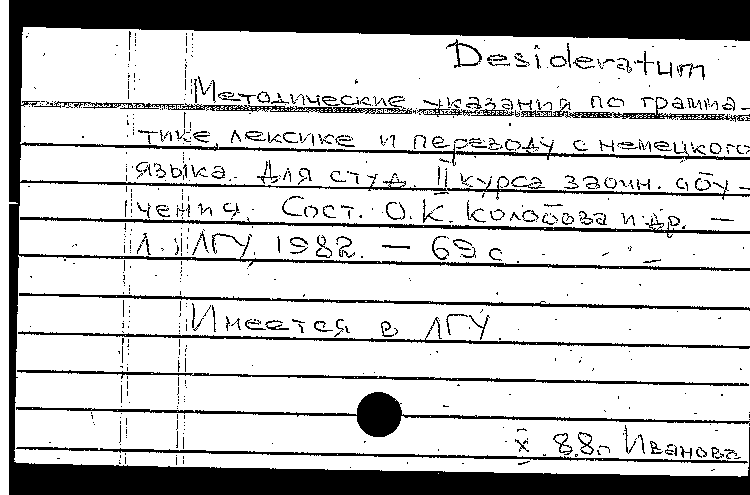 Desideratum
Методические указания по грамма-
тике, лексике и переводу с немецкого
языка. Для студ. II курса заочн. обу-
чения. Сост. О.К. Колобова и др. —
Л., ЛГУ, 1982. — 69 с.
Имеется в ЛГУ
X. 88г Иванова